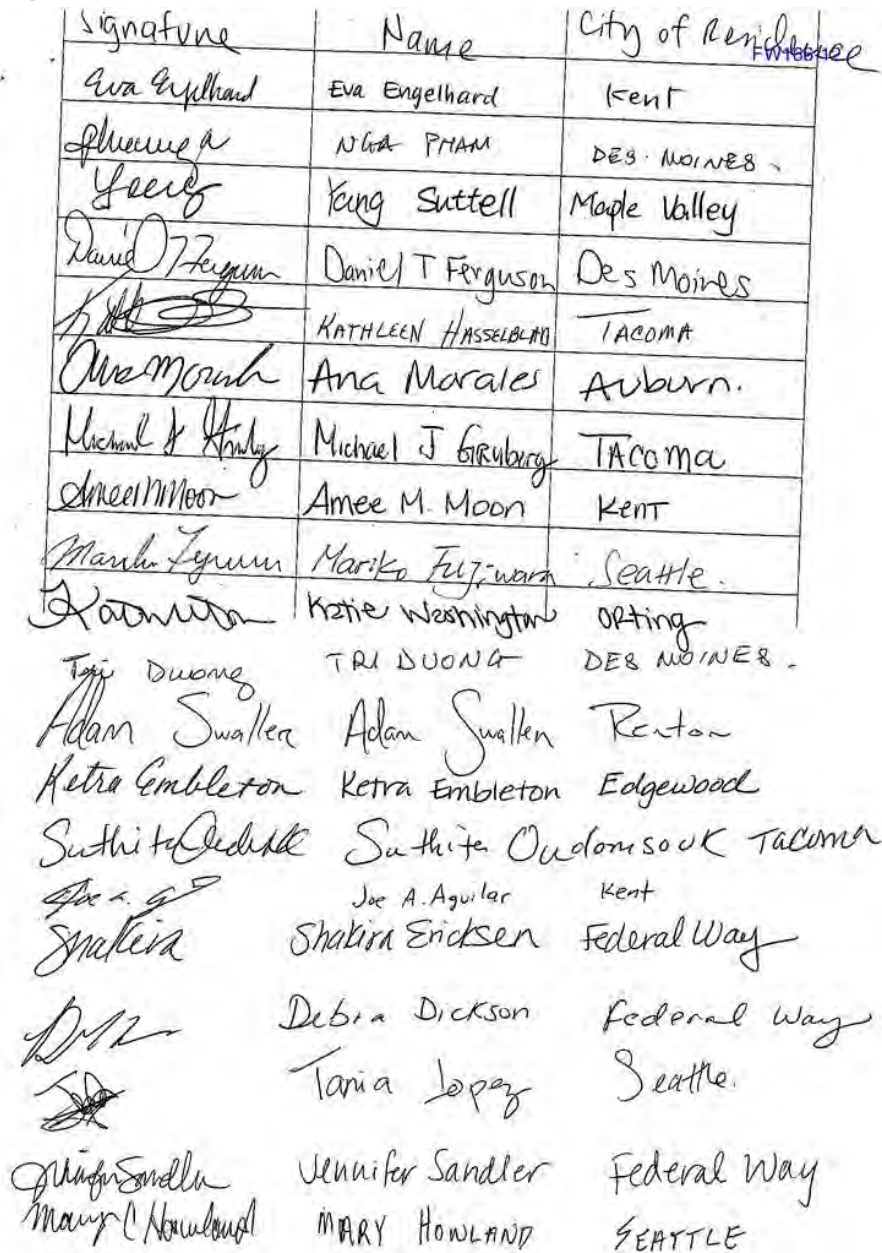 Signature Name City of Residence
FW166412
Eva Engelhard Eva Engelhard Kent
NGA PHAM DES. MOINES.
Yang Suttell Maple Valley
Daniel T Ferguson Daniel T Ferguson Des Moines
KATHLEEN HASSELBLAD TACOMA
Ana Morales Auburn.
Michael J Gruberg TACOMA
Amee M Moon Amee M. Moon Kent
Mariko Fujiwara Seattle.
Katie Washington Orting
Tri Duong TRI DUONG DES MOINES.
Adam Swallen Adam Swallen Renton
Ketra Embleton Ketra Embleton Edgewood
Suthita Oudomsouk TACOMA
Joe A. Aguilar Kent
Shakira Shakira Ericksen Federal Way
Debra Dickson Federal Way
Tania Lopez Seattle.
Jennifer Sandler Federal Way
Mary C Howland MARY HOWLAND SEATTLE